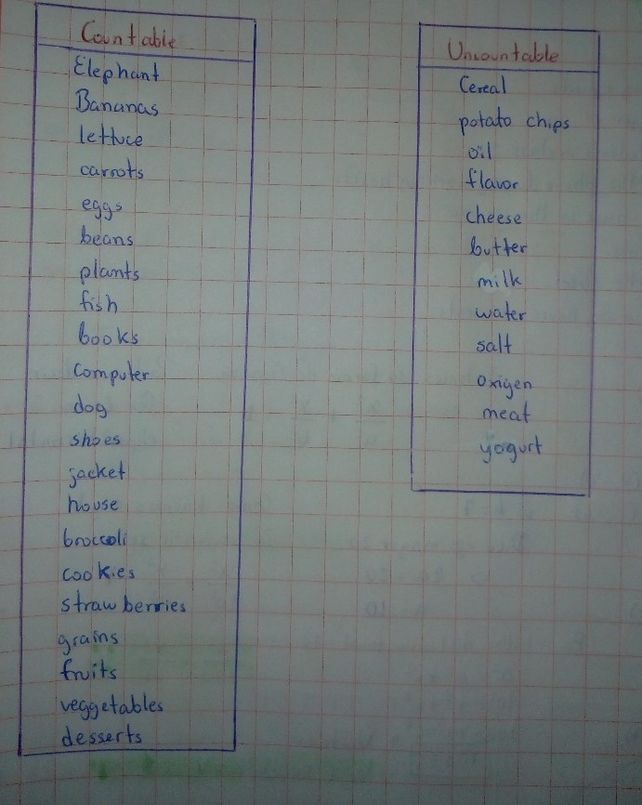 Countable
Elephant
Bananas
lettuce
carrots
eggs
beans
plants
fish
books
computer
dog
shoes
jacket
house
broccoli
cookies
strawberries
grains
fruits
veggetables
desserts
Uncountable
Cereal
potato chips
oil
flavor
cheese
butter
milk
water
salt
oxigen
meat
yogurt